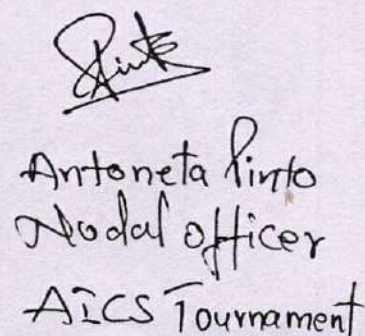 Pinto
Antoneta Pinto
Nodal officer
AICS Tournament